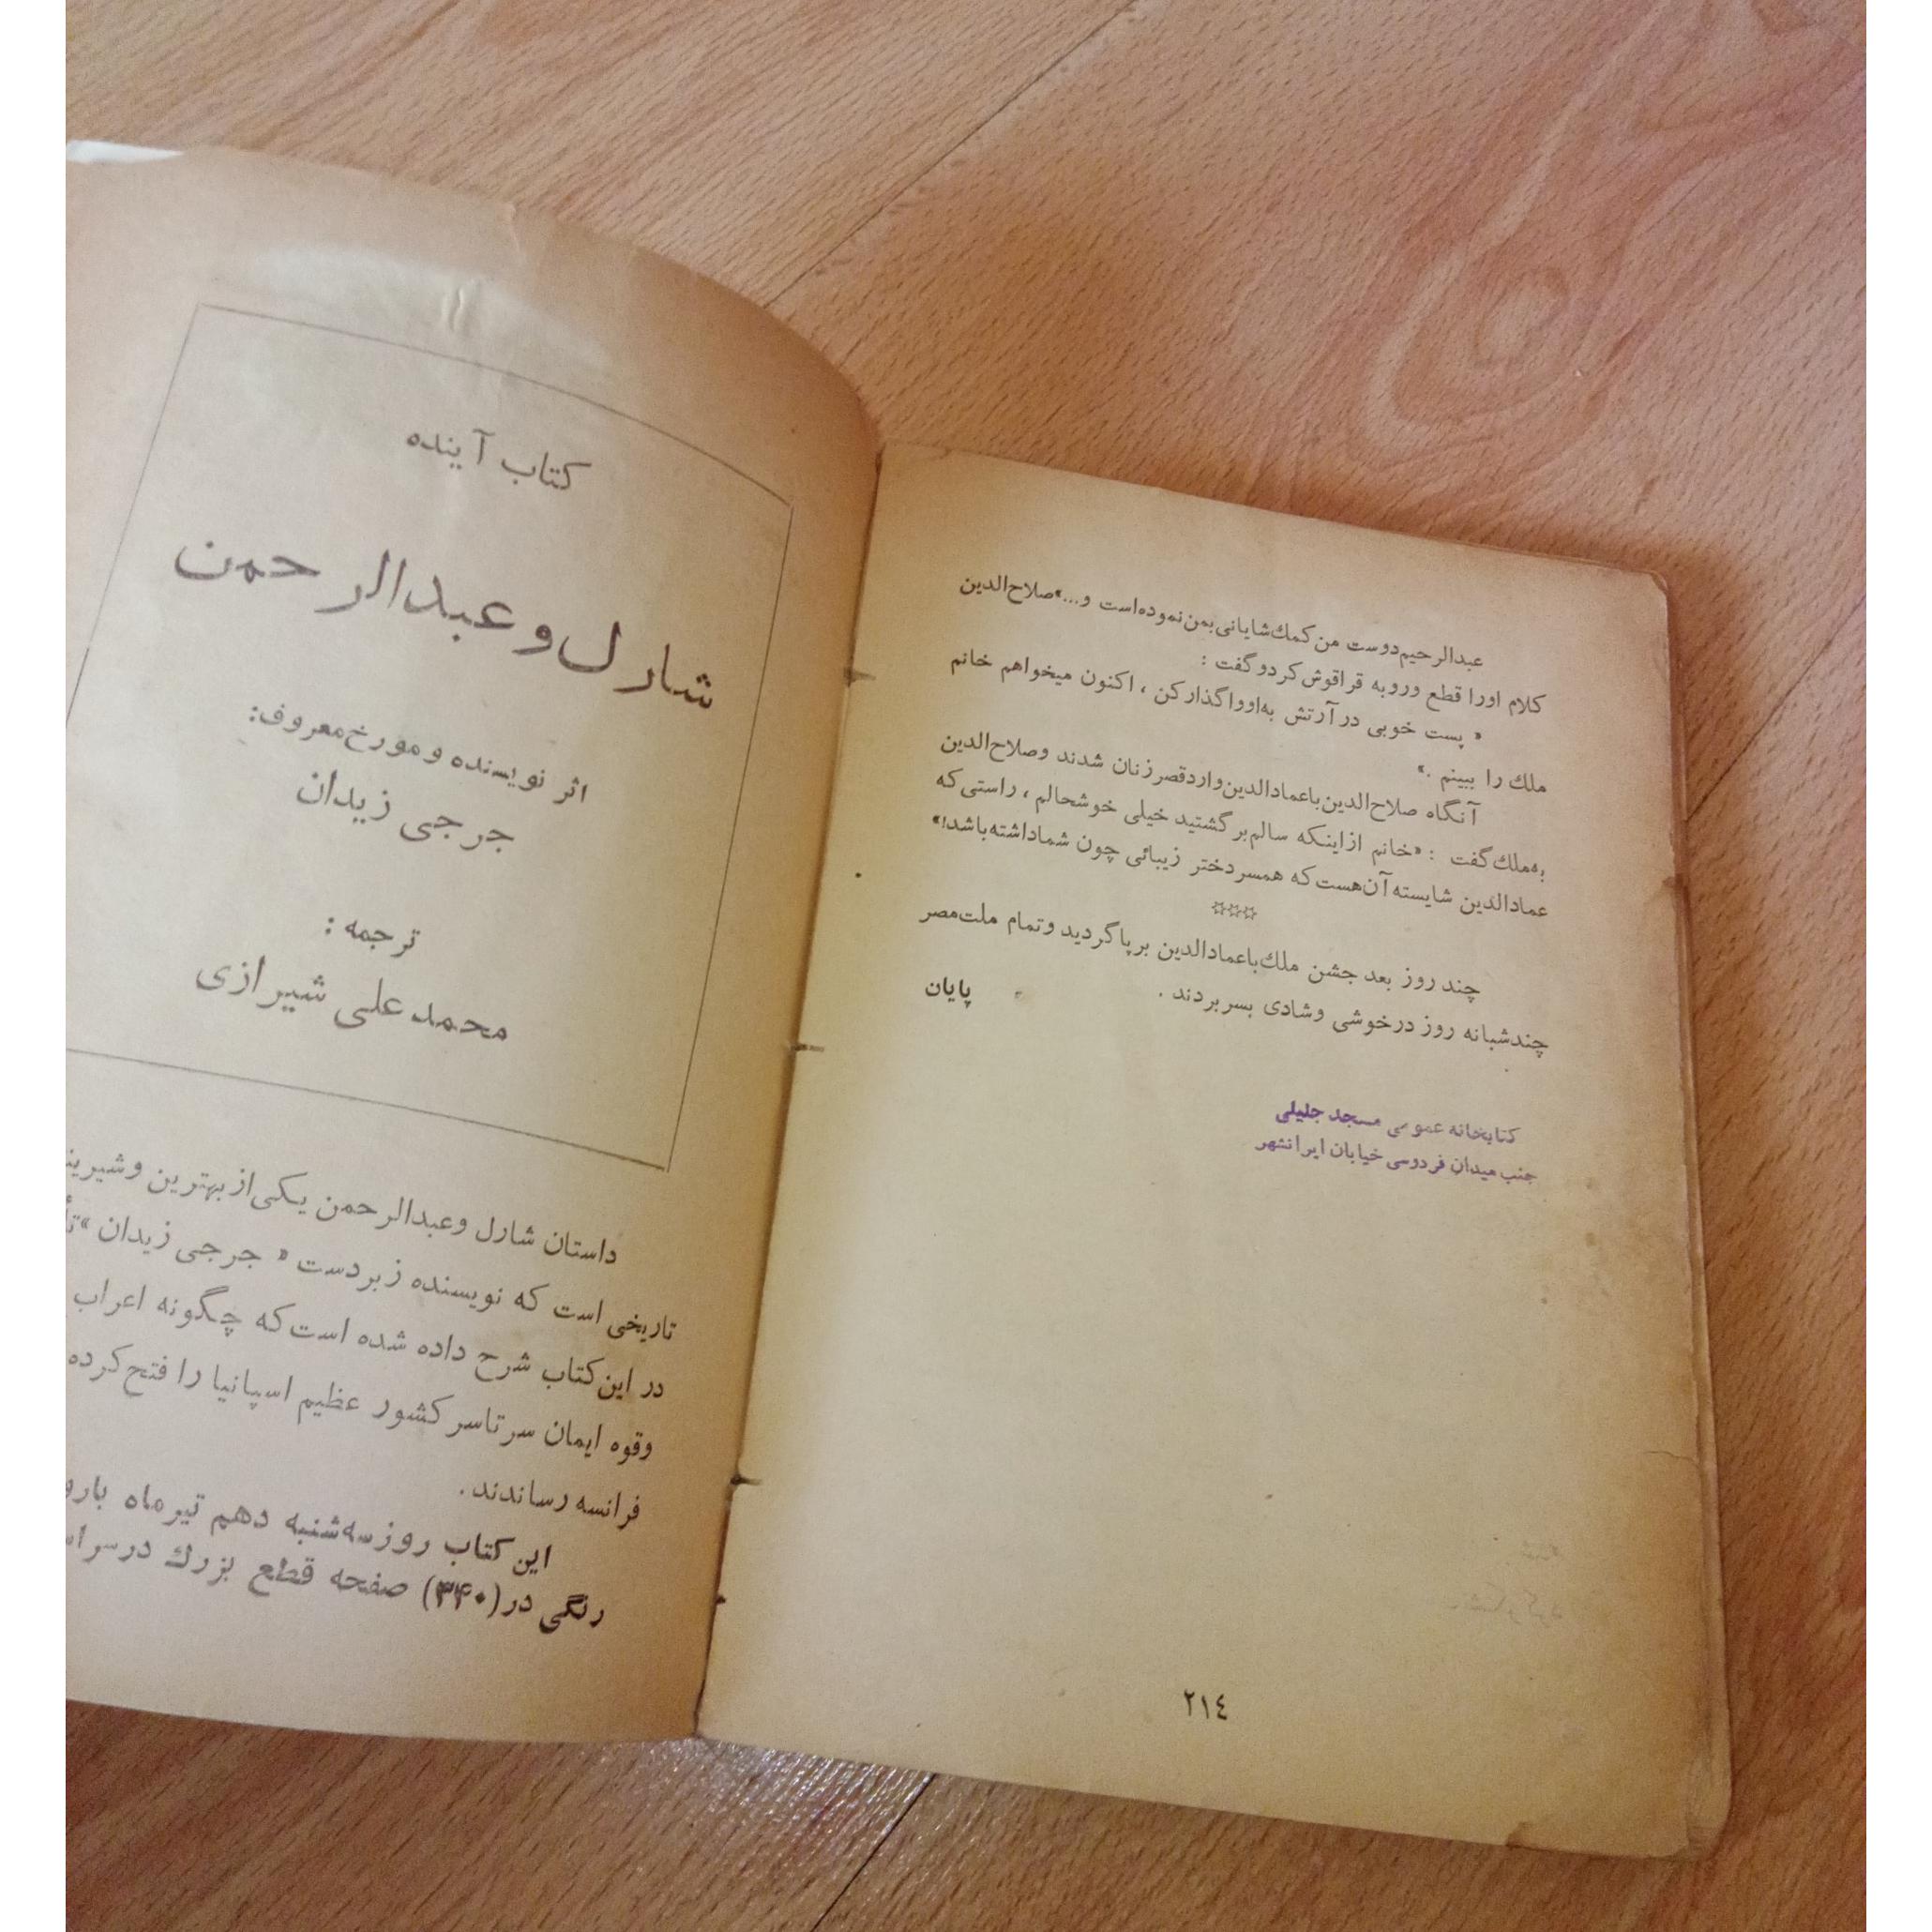 عبدالرحیم دوست من کمك شایانی بمن نموده است و...» صلاح‌الدین
کلام اورا قطع وروبه قراقوش کردو گفت :
« پست خوبی در آرتش به‌اوواگذارکن ، اکنون میخواهم خانم
ملك را ببینم .»
آنگاه صلاح‌الدین باعمادالدین وارد قصر زنان شدند وصلاح‌الدین
به‌ملك گفت : «خانم ازاینکه سالم برگشتید خیلی خوشحالم ، راستی که
عمادالدین شایسته آن هست که همسر دختر زیبائی چون شماداشته باشد!»
☆☆☆
چند روز بعد جشن ملك باعمادالدین برپا گردید وتمام ملت مصر
چندشبانه روز درخوشی وشادی بسربردند .
پایان
کتابخانه عمومی مسجد جلیلی
جنب میدان فردوسی خیابان ایرانشهر
٢١٤
کتاب آینده
شارل و عبدالرحمن
اثر نویسنده و مورخ معروف:
جرجی زیدان
ترجمه :
محمد علی شیرازی
داستان شارل وعبدالرحمن یکی از بهترین
تاریخی است که نویسنده زبردست « جرجی زیدان »
در این کتاب شرح داده شده است که چگونه اعراب
وقوه ایمان سرتاسر کشور عظیم اسپانیا را فتح کرده
فرانسه رساندند.
این کتاب روز سه‌شنبه دهم تیرماه
رنگی در (۳۴۰) صفحه قطع بزرك